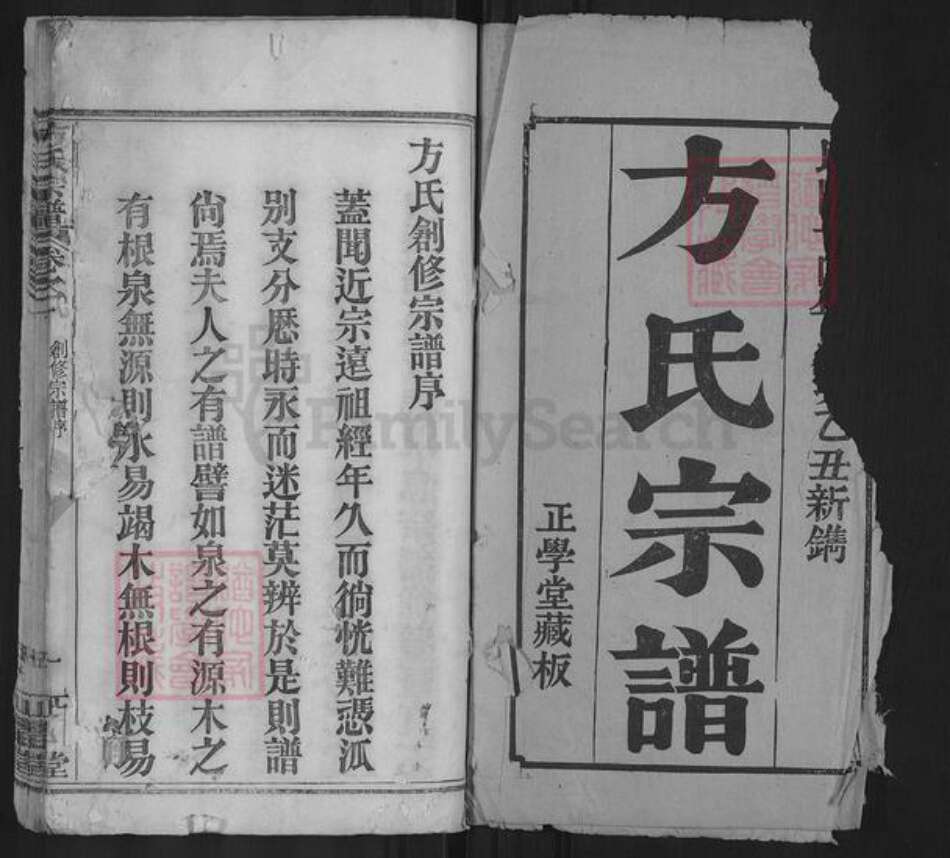 乙丑新鐫
方氏宗譜
正學堂藏板
方氏創修宗譜序
蓋聞近宗遠祖經年久而徜恍難憑泒
別支分歷時永而迷茫莫辨於是則譜
尙焉夫人之有譜譬如泉之有源木之
有根泉無源則水易竭木無根則枝易
氏宗譜卷之
創修宗譜序
堂
FamilySearch